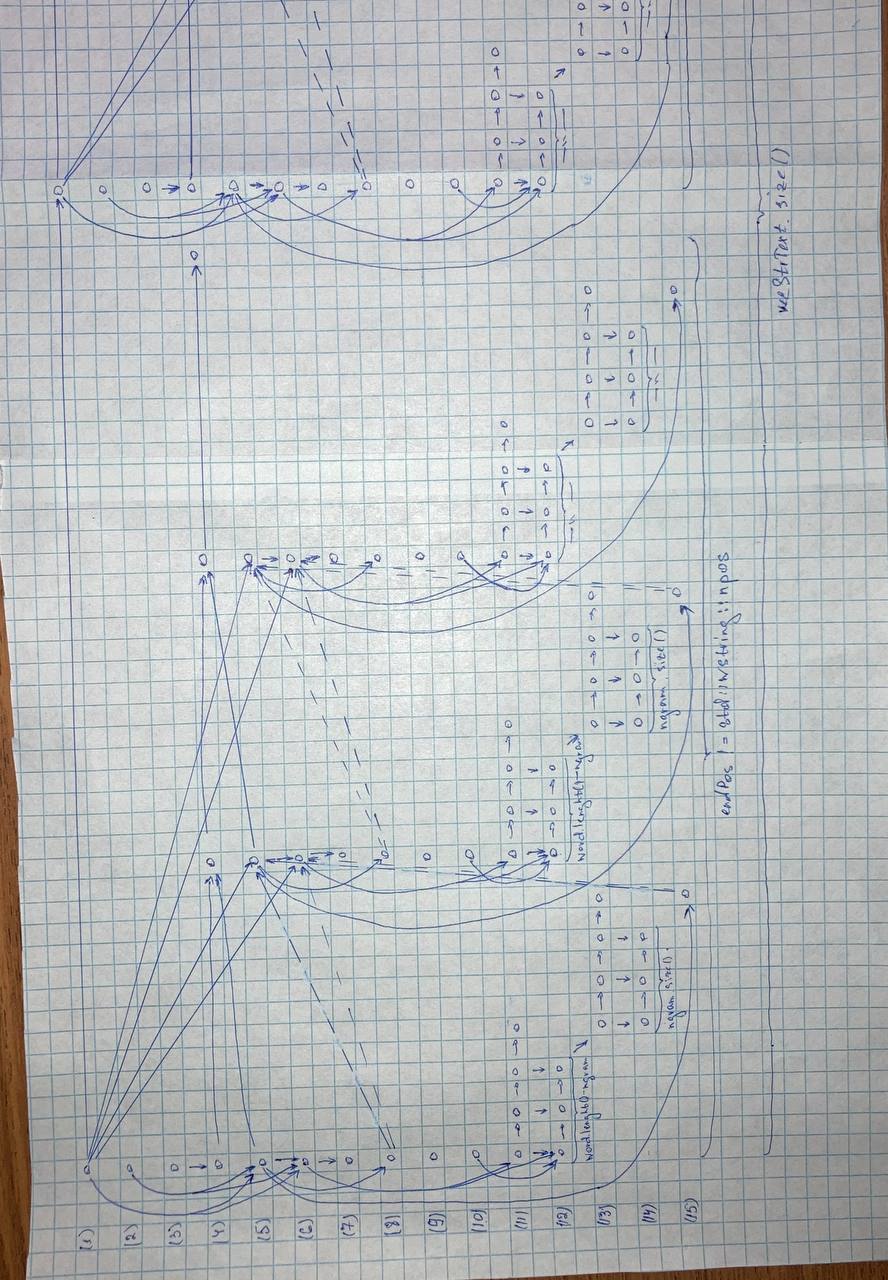 (1)
(2)
(3)
(4)
(5)
(6)
(7)
(8)
(9)
(10)
(11)
(12)
(13)
(14)
(15)
word.lenght()-ngram
ngram.size()
word.lenght()-ngram
ngram size()
—"—
—"—
—"—
—"—
endPos != std::wstring::npos
vecStrText.size()